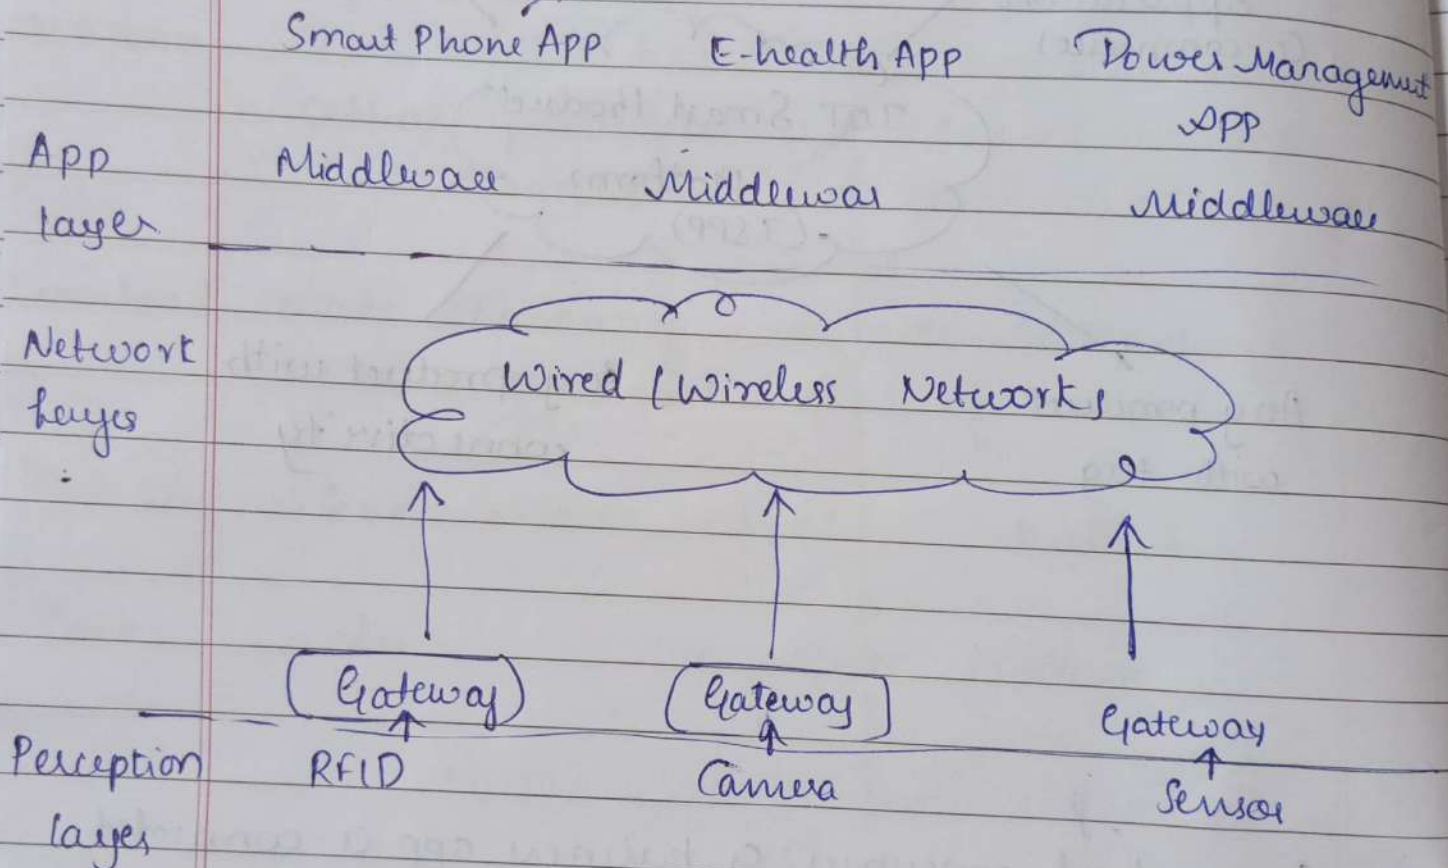 Smart Phone App E-health App Power Management
App
App Middleware Middlewar Middleware
layer
Network
Wired / Wireless Networks
Layer
Gateway Gateway Gateway
Perception RFID Camera Sensor
layer